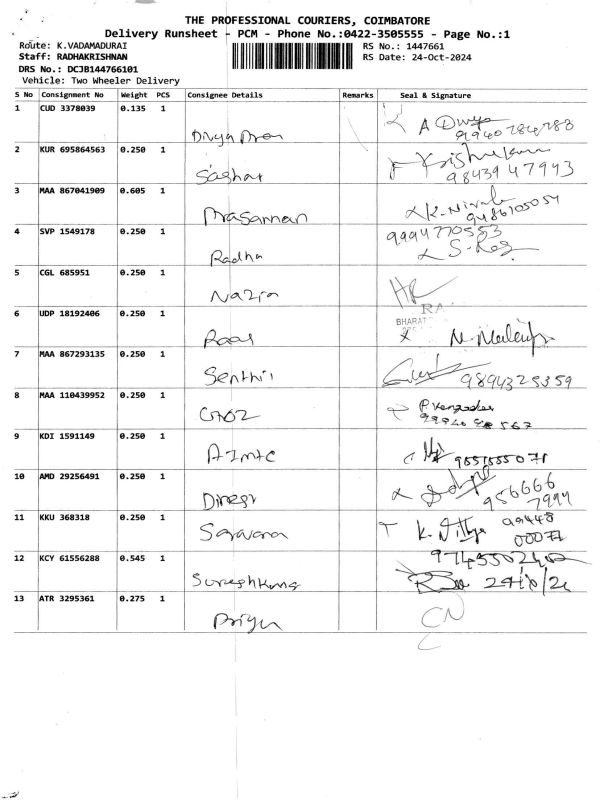 THE PROFESSIONAL COURIERS, COIMBATORE
Delivery Runsheet - PCM - Phone No.:0422-3505555 - Page No.:1
Route: K.VADAMADURAI
RS No.: 1447661
Staff: RADHAKRISHNAN
RS Date: 24-Oct-2024
DRS No.: DCJB144766101
Vehicle: Two Wheeler Delivery
S No Consignment No Weight PCS Consignee Details Remarks Seal & Signature
1 CUD 3378039 0.135 1
A Divya
2 KUR 695864563 0.250 1
98439 47943
3 MAA 867041909 0.605 1
Prasannan
9486105054
4 SVP 1549178 0.250 1 9994770553
Radha
5 CGL 685951 0.250 1
Nazia
6 UDP 18192406 0.250 1
BHARAT
7 MAA 867293135 0.250 1
Senthil 9894325359
8 MAA 110439952 0.250 1
9 KDI 1591149 0.250 1
10 AMD 29256491 0.250 1
Dinesh 956666
7994
11 KKU 368318 0.250 1
Saravana K. Nithya 99448
00077
12 KCY 61556288 0.545 1
Sureshkumar
13 ATR 3295361 0.275 1
Priya CN